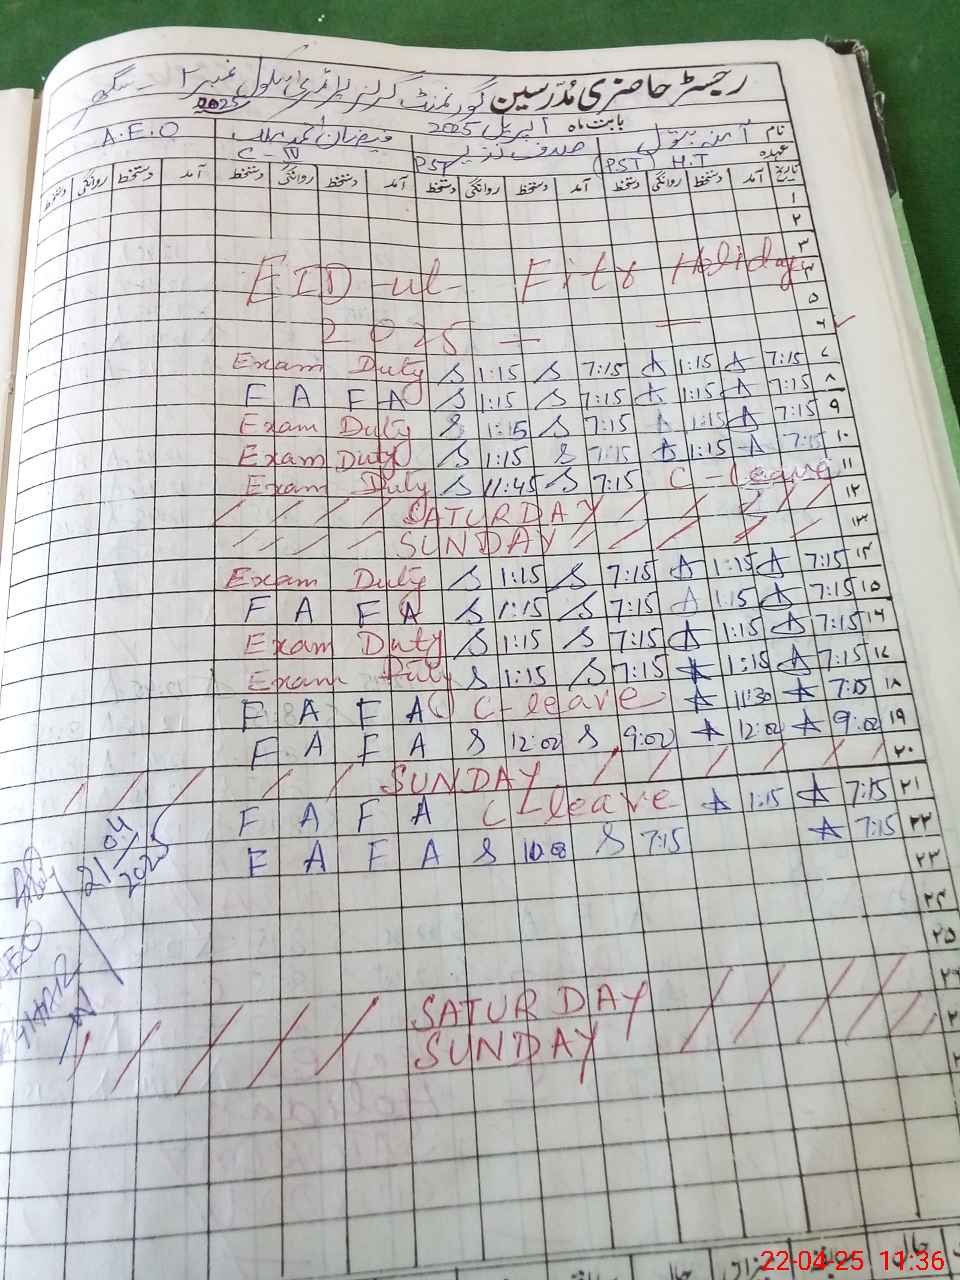 رجسٹر حاضری مدرسین گورنمنٹ گرلز پرائمری سکول نمبر ۲
نام آمنہ بتول بابت ماہ اپریل 2025 2025 A.E.O
عہدہ H.T (PST) صدف نذیر PST C-IV
تاریخ آمد دستخط روانگی دستخط آمد دستخط روانگی دستخط آمد دستخط روانگی دستخط آمد دستخط روانگی دستخط
۱
۲
۳
EID-ul-Fitr Holiday ۴
۵
2025 ۶
Exam Duty S 1:15 S 7:15 A 1:15 A 7:15 ۷
F A F A S 1:15 S 7:15 A 1:15 A 7:15 ۸
Exam Duty S 1:15 S 7:15 A 1:15 A 7:15 ۹
Exam Duty S 1:15 S 7:15 A 1:15 A 7:15 ۱۰
Exam Duty S 11:45 S 7:15 C-leave ۱۱
SATURDAY ۱۲
SUNDAY ۱۳
Exam Duty S 1:15 S 7:15 A 1:15 A 7:15 ۱۴
F A F A S 1:15 S 7:15 A 1:15 A 7:15 ۱۵
Exam Duty S 1:15 S 7:15 A 1:15 A 7:15 ۱۶
Exam Duty S 1:15 S 7:15 A 1:15 A 7:15 ۱۷
F A F A C-leave A 11:30 A 7:15 ۱۸
F A F A S 12:02 S 9:02 A 12:02 A 9:02 ۱۹
SUNDAY ۲۰
F A F A C-leave A 1:15 A 7:15 ۲۱
F A F A S S 7:15 A 7:15 ۲۲
21/04/2025
۲۳
۲۴
۲۵
SATURDAY ۲۶
SUNDAY
22-04-25 11:36